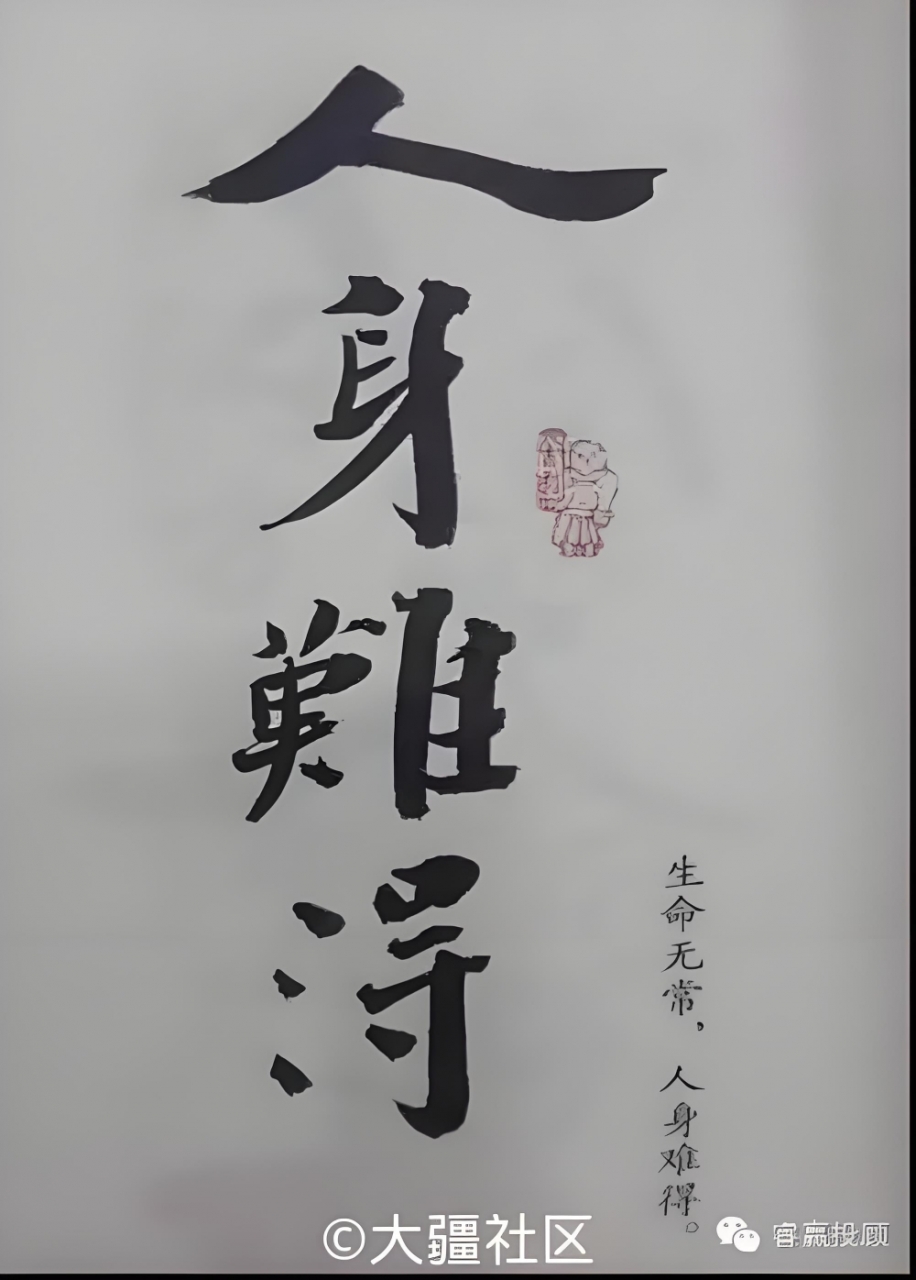 人身難得
生命无常，人身难得。
©大疆社区
睿赢投顾